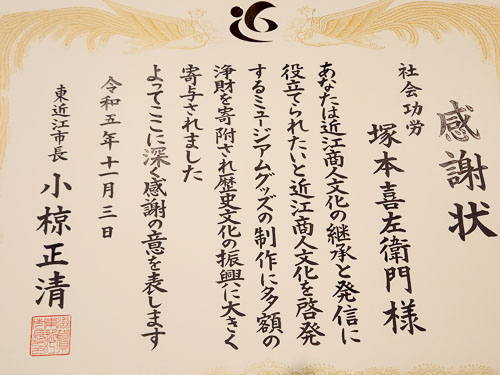 感謝状
社会功労
塚本喜左衛門様
あなたは近江商人文化の継承と発信に
役立てられたいと近江商人文化を啓発
するミュージアムグッズの制作に多額の
浄財を寄附され歴史文化の振興に大きく
寄与されました
よってここに深く感謝の意を表します
令和五年十一月三日
東近江市長
小椋正清